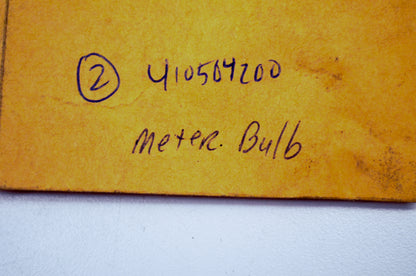 ② 410504200
Meter. Bulb